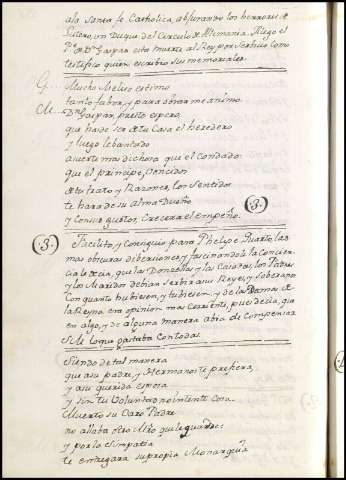 a la Santa fe Catholica, abjurando los herrores de
Lutero, un Duque del Circulo de Alemania. Niego el
Pe. a Dn. Gaspar esta muerte al Rey por servirse como
testifico quien escribio sus memoriales.
G... Mucho Meliso estimo
tanto fabor, y para obrar me animo
M... Dn. Gaspar, presto espero,
que ha de ser de tu Casa el heredero
y luego lebantado
a suerte mas dichosa que el Condado:
que el principe, Vencidos
de tu trato y Razones, los Sentidos
te hara de su Alma Dueño
y con sus gustos, Crecera el empeño. (3.)
(3.) Facilito, y Consiguio para Phelipe Quarto, las
mas obscuras diberciones, y fascinandole la Concien-
cia le decia, que las Donzellas, y las Casadas, los Padres,
y los Maridos debian Servir a sus Reyes, y Soberanos
Con quanto hubiesen, y tubiesen y de las Damas de
la Reyna era opinion mas Corriente, pues decia, que
en algo, y de alguna manera abia de Compensar
S.M. lo que gastaba Con todas.
Siendo de tal manera
que a su padre, y Hermanos te prefiera,
y a su querida esposa
y sin tu Voluntad no intente Cosa.
Muerto su Caro Padre
no allaba otro Niño que le quadre:
y por la Simpatia
te entregara su propia Monarquia